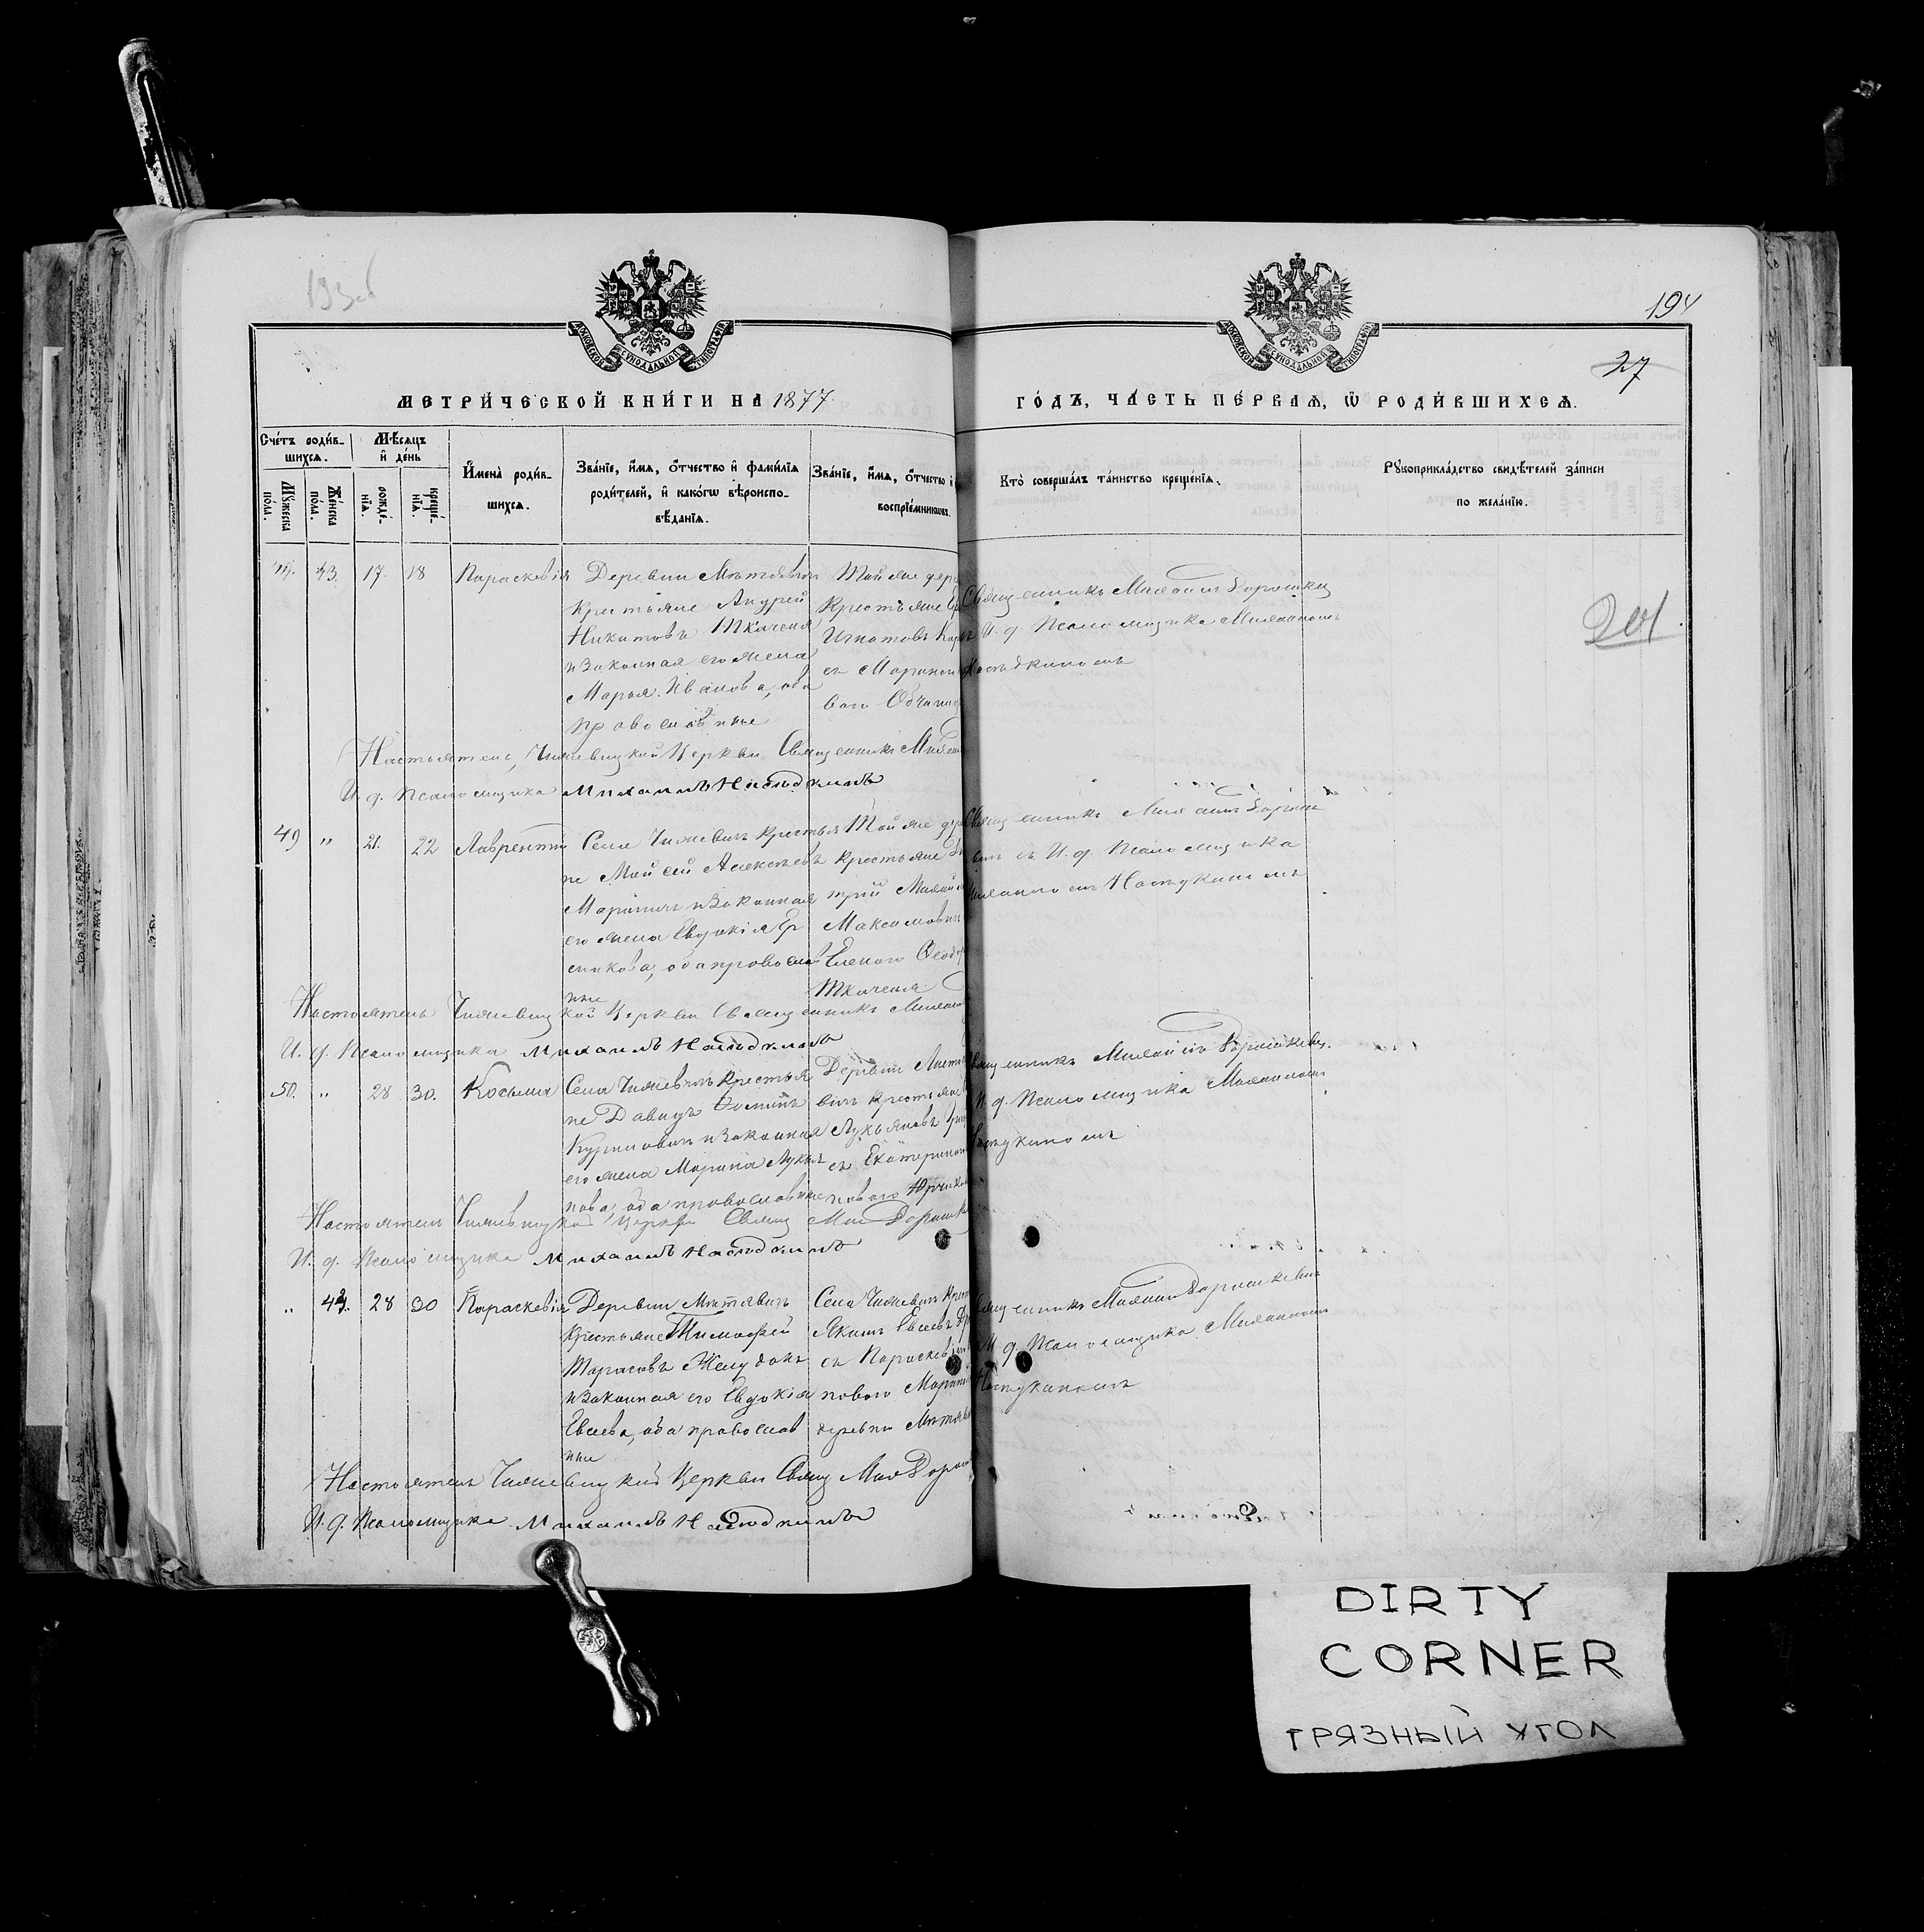 193об
194
27
201
МОСКОВСКОЙ СѴНОДАЛЬНОЙ ТИПОГРАФІИ
МОСКОВСКОЙ СѴНОДАЛЬНОЙ ТИПОГРАФІИ
МЕТРИ́ЧЕСКОЙ КНИ́ГИ НА 1877
ГО́ДЪ, ЧА́СТЬ ПЕ́РВАЯ, Ѡ РОДИ́ВШИХСЯ.
Сче́тъ роди́в-
шихся.
Му́жеска
по́ла.
Же́нска
по́ла.
Мѣ́сяцъ
и де́нь
рожде́-
нїя.
креще́-
нїя.
Имена̀ роди́в-
шихся.
Зва́нїе, и́мя, о́тчество и фами́лїя
роди́телей, и како́гѡ вѣроиспо-
вѣ́данїя.
Зва́нїе, и́мя, о́тчество и
воспрїе́мникѡвъ.
Кто̀ соверша́лъ та́инство креще́нїя.
Рꙋкоприкла́дство свидѣ́телей за́писи
по жела́нїю.
43. 17. 18 Параскевія
Деревни
Крестьяне Андрей
Никитовъ Ткаченя
и Законная его жена
Марья Иванова, оба
православные
Той же дер
Крестьяне
Игнатовъ
съ Мариною
Священникъ Михаилъ Дорошкев
И. д. Псаломщика Михаиломъ
Наседкинымъ
Настоятель, Чижевицкой Церкви Священникъ Михаил
И. д. Псаломщика Михаилъ Наседкинъ
49 " 21. 22 Лаврентій
Села Чижевичъ Крестья
не Мойсей Алексѣевъ
Маринич и Законная
его жена Евдокія Ер
емикова, оба православ
ные
Той же дер
Крестьяне
трій Михайл
Максимович
Еленою Ѳеодор
Ткаченя
Священникъ Михаилъ Дорош
съ И. д. Псаломщика
Михаиломъ Наседкинымъ
Настоятель Чижевицкой Церкви Священникъ Михаил
И. д. Псаломщика Михаилъ Наседкинъ
50. " 28 30. Косьма
Села Чижевичъ Крестья
не Давидъ Ѳоминъ
Курилович и Законная
его жена Марина Лукья
нова, оба православные
Деревни
вич крестьяне
Лукьяновъ
съ Екатериною
Священникъ Михаилъ Дорошкевич.
И. д. Псаломщика Михаиломъ
Наседкинымъ
Настоятель Чижевицкой Церкви Свящ Мих Дорошк
И. д. Псаломщика Михаилъ Наседкинъ
" 44. 28 30 Параскевія
Деревни
Крестьяне Тимофей
Тарасовъ Желудокъ
и Законная его Евдокія
Евсеева, оба православ
ные
Села Чижевичъ Крест
Якимъ Евсеевъ
съ Параскев
новою Марин
деревни
Священникъ Михаилъ Дорошкевич
И. д. Псаломщика Михаиломъ
Наседкинымъ
Настоятель Чижевицкой Церкви Свящ Мих Дорош
И. д. Псаломщика Михаилъ Наседкинъ
DIRTY
CORNER
ГРЯЗНЫЙ УГОЛ